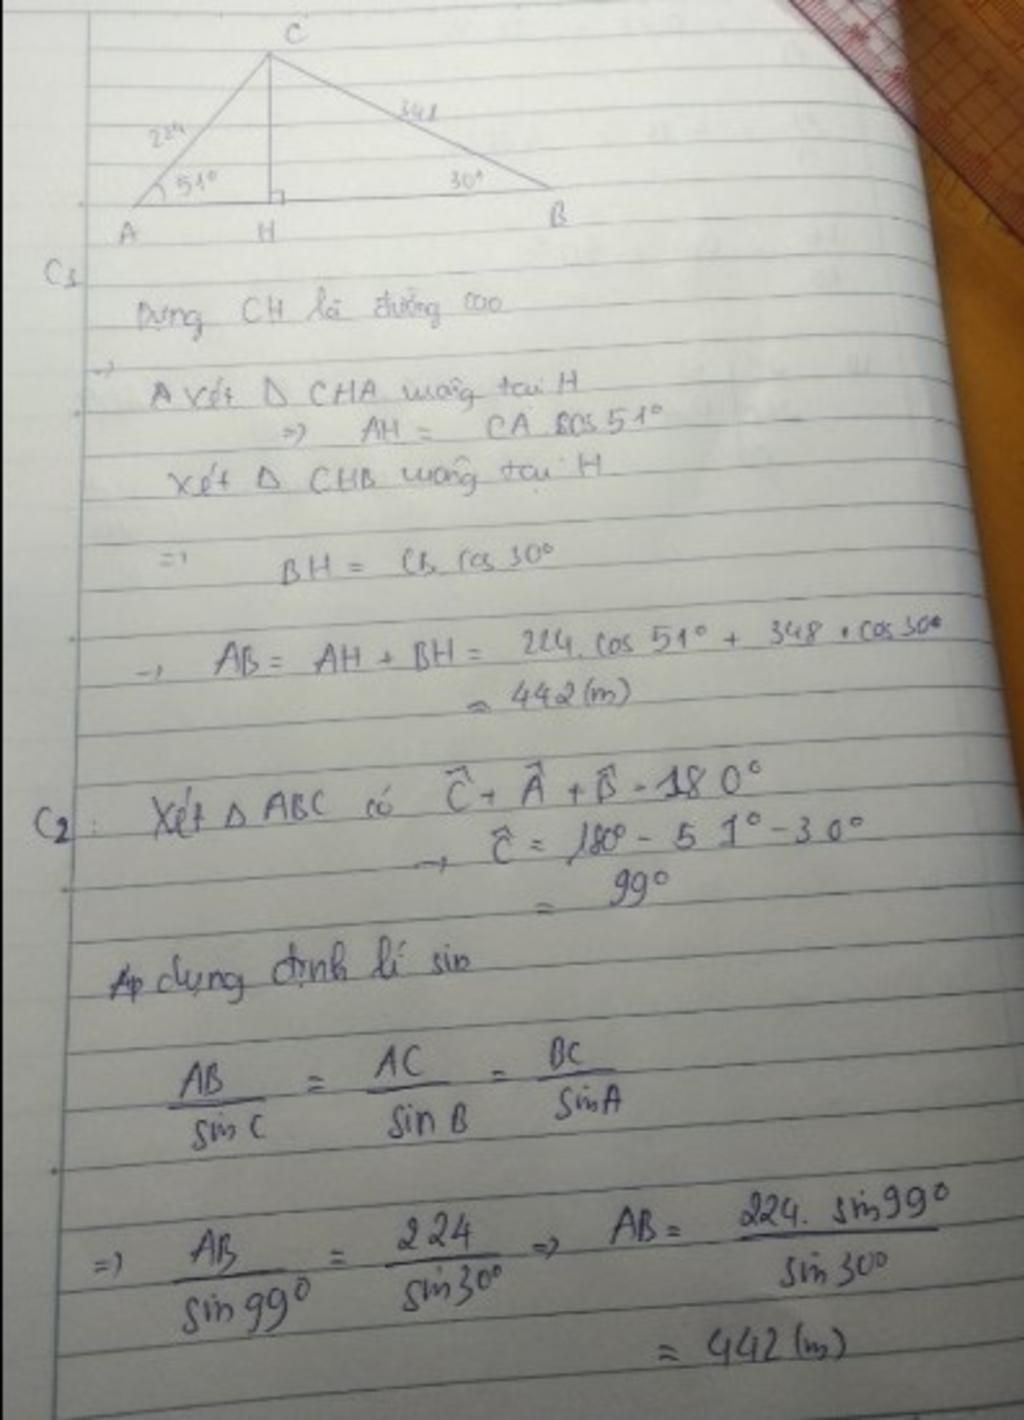 C
224
348
51°
30°
A
H
B
C1
Dựng CH là đường cao
→
A xét Δ CHA vuông tại H
=> AH = CA cos 51°
Xét Δ CHB vuông tại H
=> BH = CB cos 30°
→ AB = AH + BH = 224. cos 51° + 348 . cos 30°
≈ 442 (m)
C2: Xét Δ ABC có Ĉ + Â + B̂ = 180°
→ Ĉ = 180° - 51° - 30°
= 99°
Áp dụng định lí sin
AB/sin C = AC/sin B = BC/sin A
=> AB/sin 99° = 224/sin 30° => AB = 224. sin 99°/sin 30°
≈ 442 (m)